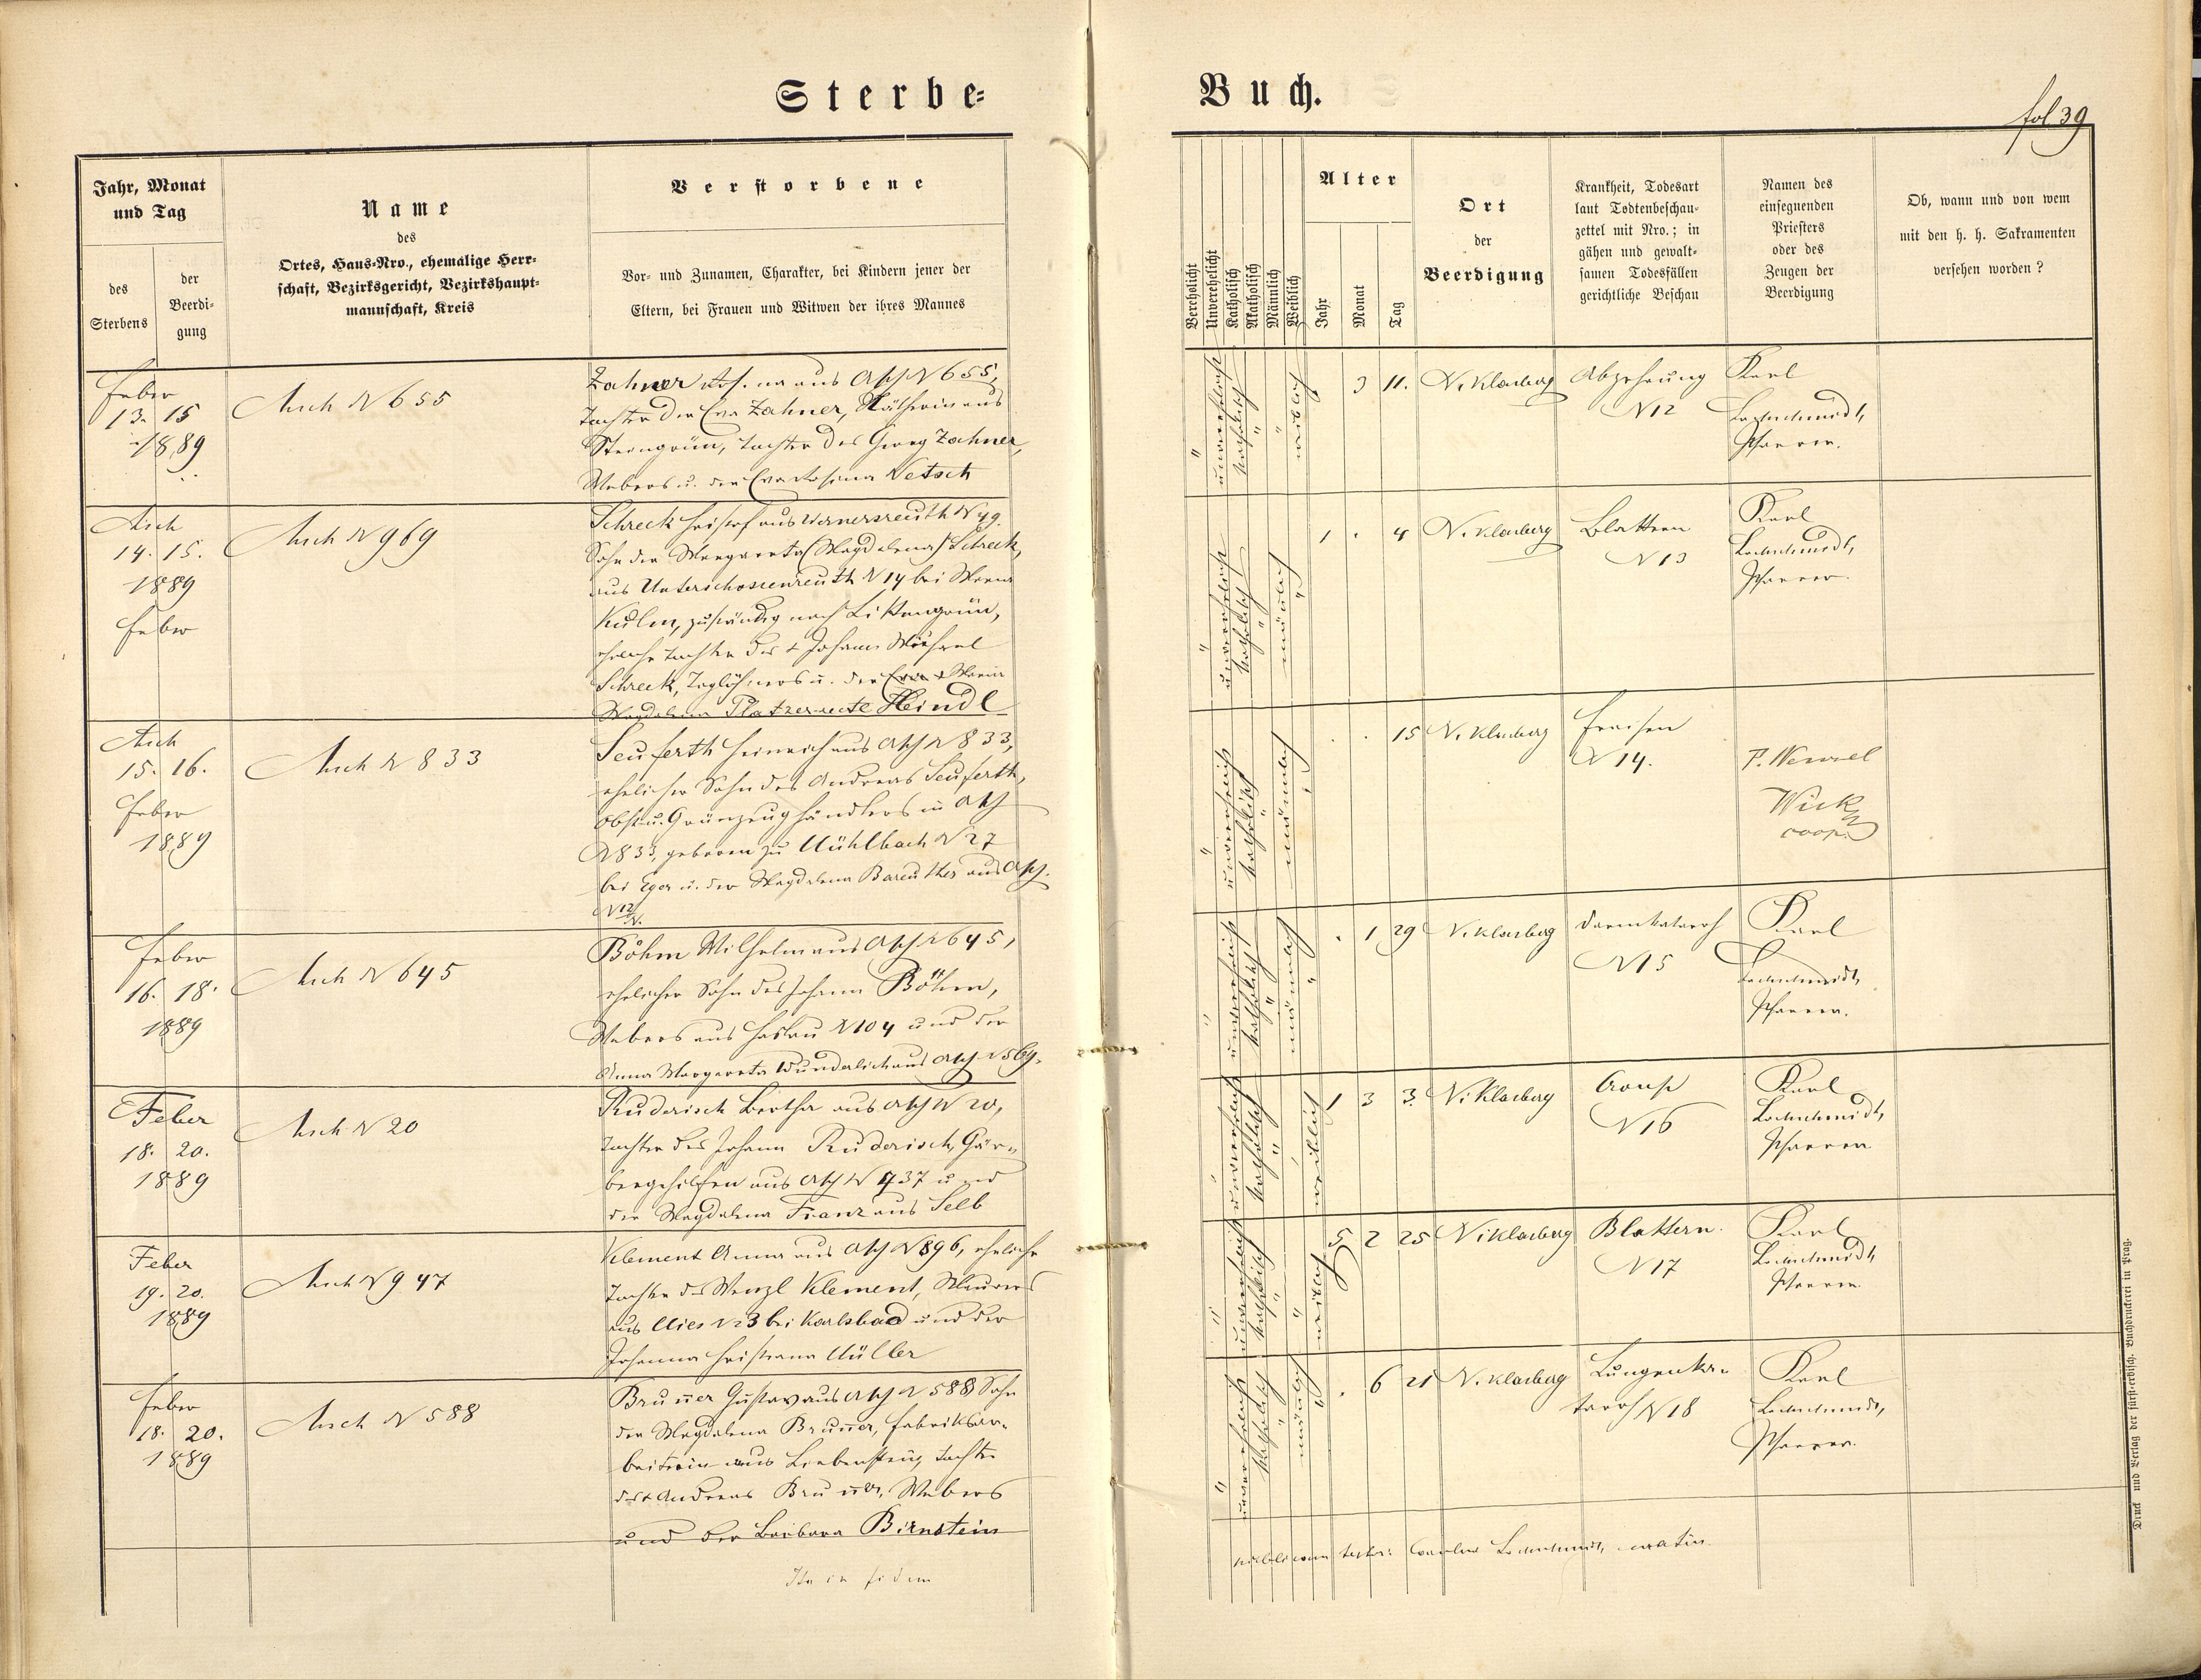 Sterbe=
Buch.
fol. 39
Jahr, Monat
und Tag
des
Sterbens
der
Beerdi=
gung
Name
des
Ortes, Haus=Nro., ehemalige Herr=
schaft, Bezirksgericht, Bezirkshaupt=
mannschaft, Kreis
Verstorbene
Vor= und Zunamen, Charakter, bei Kindern jener der
Eltern, bei Frauen und Witwen der ihres Mannes
Verehelicht
Unverehelicht
Katholisch
Akatholisch
Männlich
Weiblich
Alter
Jahr
Monat
Tag
Ort
der
Beerdigung
Krankheit, Todesart
laut Todtenbeschau=
zettel mit Nro.; in
gähen und gewalt=
samen Todesfällen
gerichtliche Beschau
Namen des
einsegnenden
Priesters
oder des
Zeugen der
Beerdigung
Ob, wann und von wem
mit den h. h. Sakramenten
versehen worden?
Feber
13. 15
1889
Asch N 655
Zahner aus Asch N 655,
Tochter der Eva Zahner, aus
Steingrün, Tochter des Georg Zahner,
Webers u. der Eva Rosina Netsch
unverehelicht
katholisch
weiblich
3 11.
Niklasberg
Abzehrung
N 12
Karl
Lochschmidt,
Pfarrer.
Asch
14. 15.
1889
Feber
Asch N 969
Schreck Christof aus Wernersreuth N 49.
Sohn der Margareta (Magdalena) Schreck,
aus Unterschossenreuth N 14 bei Maria
Kulm, zuständig nach Littengrün,
eheliche Tochter des + Johann Michael
Schreck, Taglöhners u. der Eva Maria
Magdalena Platzer recte Heindl
unverehelicht
katholisch
männlich
1 . 4
Niklasberg
Blattern
N 13
Karl
Lochschmidt,
Pfarrer.
Asch
15. 16.
Feber
1889
Asch N 833
Seuferth Heinrich aus Asch N 833,
ehelicher Sohn des Andreas Seuferth,
Obst u. Grünzeughändlers in Asch
N 833, geboren zu Mühlbach N 27
bei Eger u. der Magdalena Bareuther aus Asch.
N 12
unverehelicht
katholisch
männlich
. . 15
Niklasberg
Fraisen
N 14.
P. Wenzel
Wick
coop.
Feber
16. 18.
1889
Asch N 645
Böhm Wilhelm aus Asch N 645,
ehelicher Sohn des Johann Böhm,
Webers aus Haslau N 104 und der
Anna Margareta Wunderlich aus Asch N 569.
unverehelicht
katholisch
männlich
. 1 29
Niklasberg
Darmkatarrh
N 15
Karl
Lochschmidt,
Pfarrer.
Feber
18. 20.
1889
Asch N 20
Ruderisch Bertha aus Asch N 20,
Tochter des Johann Ruderisch, Gär=
bergehilfen aus Asch N 737 und
der Magdalena Franz aus Selb
unverehelicht
katholisch
weiblich
1 3 3.
Niklasberg
Croup
N 16
Karl
Lochschmidt,
Pfarrer
Feber
19. 20.
1889
Asch N 947
Klement Anna aus Asch N 896, eheliche
Tochter des Wenzl Klement, Maurers
aus Mies N 23 bei Karlsbad und der
Johanna Christiana Müller
unverehelicht
katholisch
weiblich
5 2 25
Niklasberg
Blattern.
N 17
Karl
Lochschmidt,
Pfarrer
Feber
18. 20.
1889
Asch N 588
Bruner Gustav aus Asch N 588 Sohn
der Magdalena Bruner, Fabriksar=
beiterin aus Liebenstein, Tochter
des + Andreas Bruner, Webers
und der Barbara Birnstein
unverehelicht
katholisch
männlich
. 6 21
Niklasberg
Lungenka=
tarrh N 18
Karl
Lochschmidt,
Pfarrer.
Ita in fidem
Carolus Lochschmidt, curatus.
Druck und Verlag der fürst=erzbisch. Buchdruckerei in Prag.